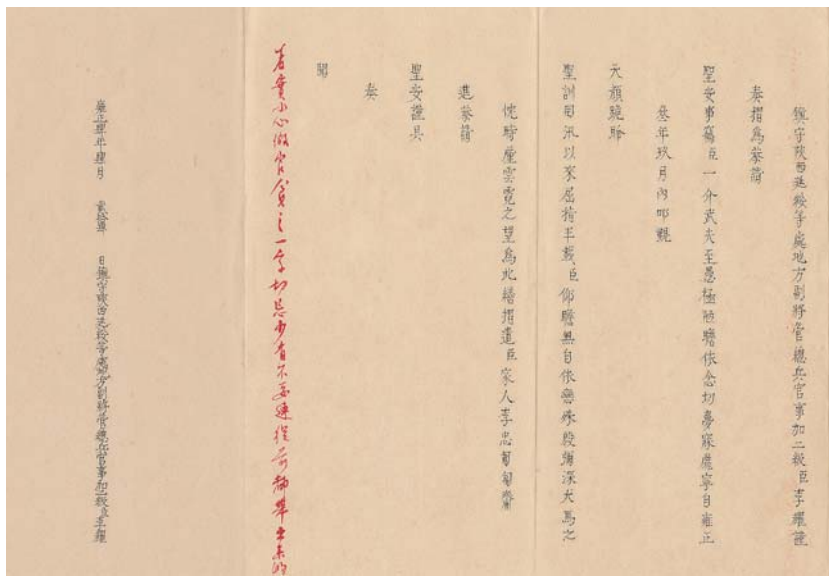 鎮守陝西延綏等處地方副將管總兵官事加二級臣李耀謹
奏摺為恭請
聖安事竊臣一介武夫至愚極陋瞻依念切夢寐靡寧自雍正
叁年玖月內叩覲
天顏跪聆
聖訓回汛以來屈指半載臣仰瞻無自依戀殊殷彌深犬馬之
忱時廑雲霓之望為此繕摺遣臣家人李忠匍匐齎
進恭請
聖安謹具
奏
聞
着實小心做官貪之一字切忌少有不妥連從前都畢出來的
雍正肆年肆月 貳拾 日鎮守陝西延綏等處地方副將管總兵官事加二級臣李耀